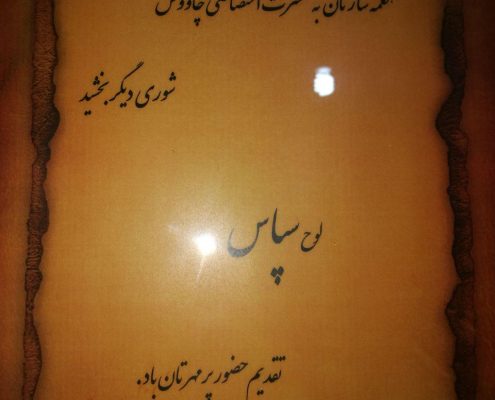 به شرکت اختصاصی چاووش
شوری دیگر بخشید
لوح سپاس
تقدیم حضور پر مهرتان باد.